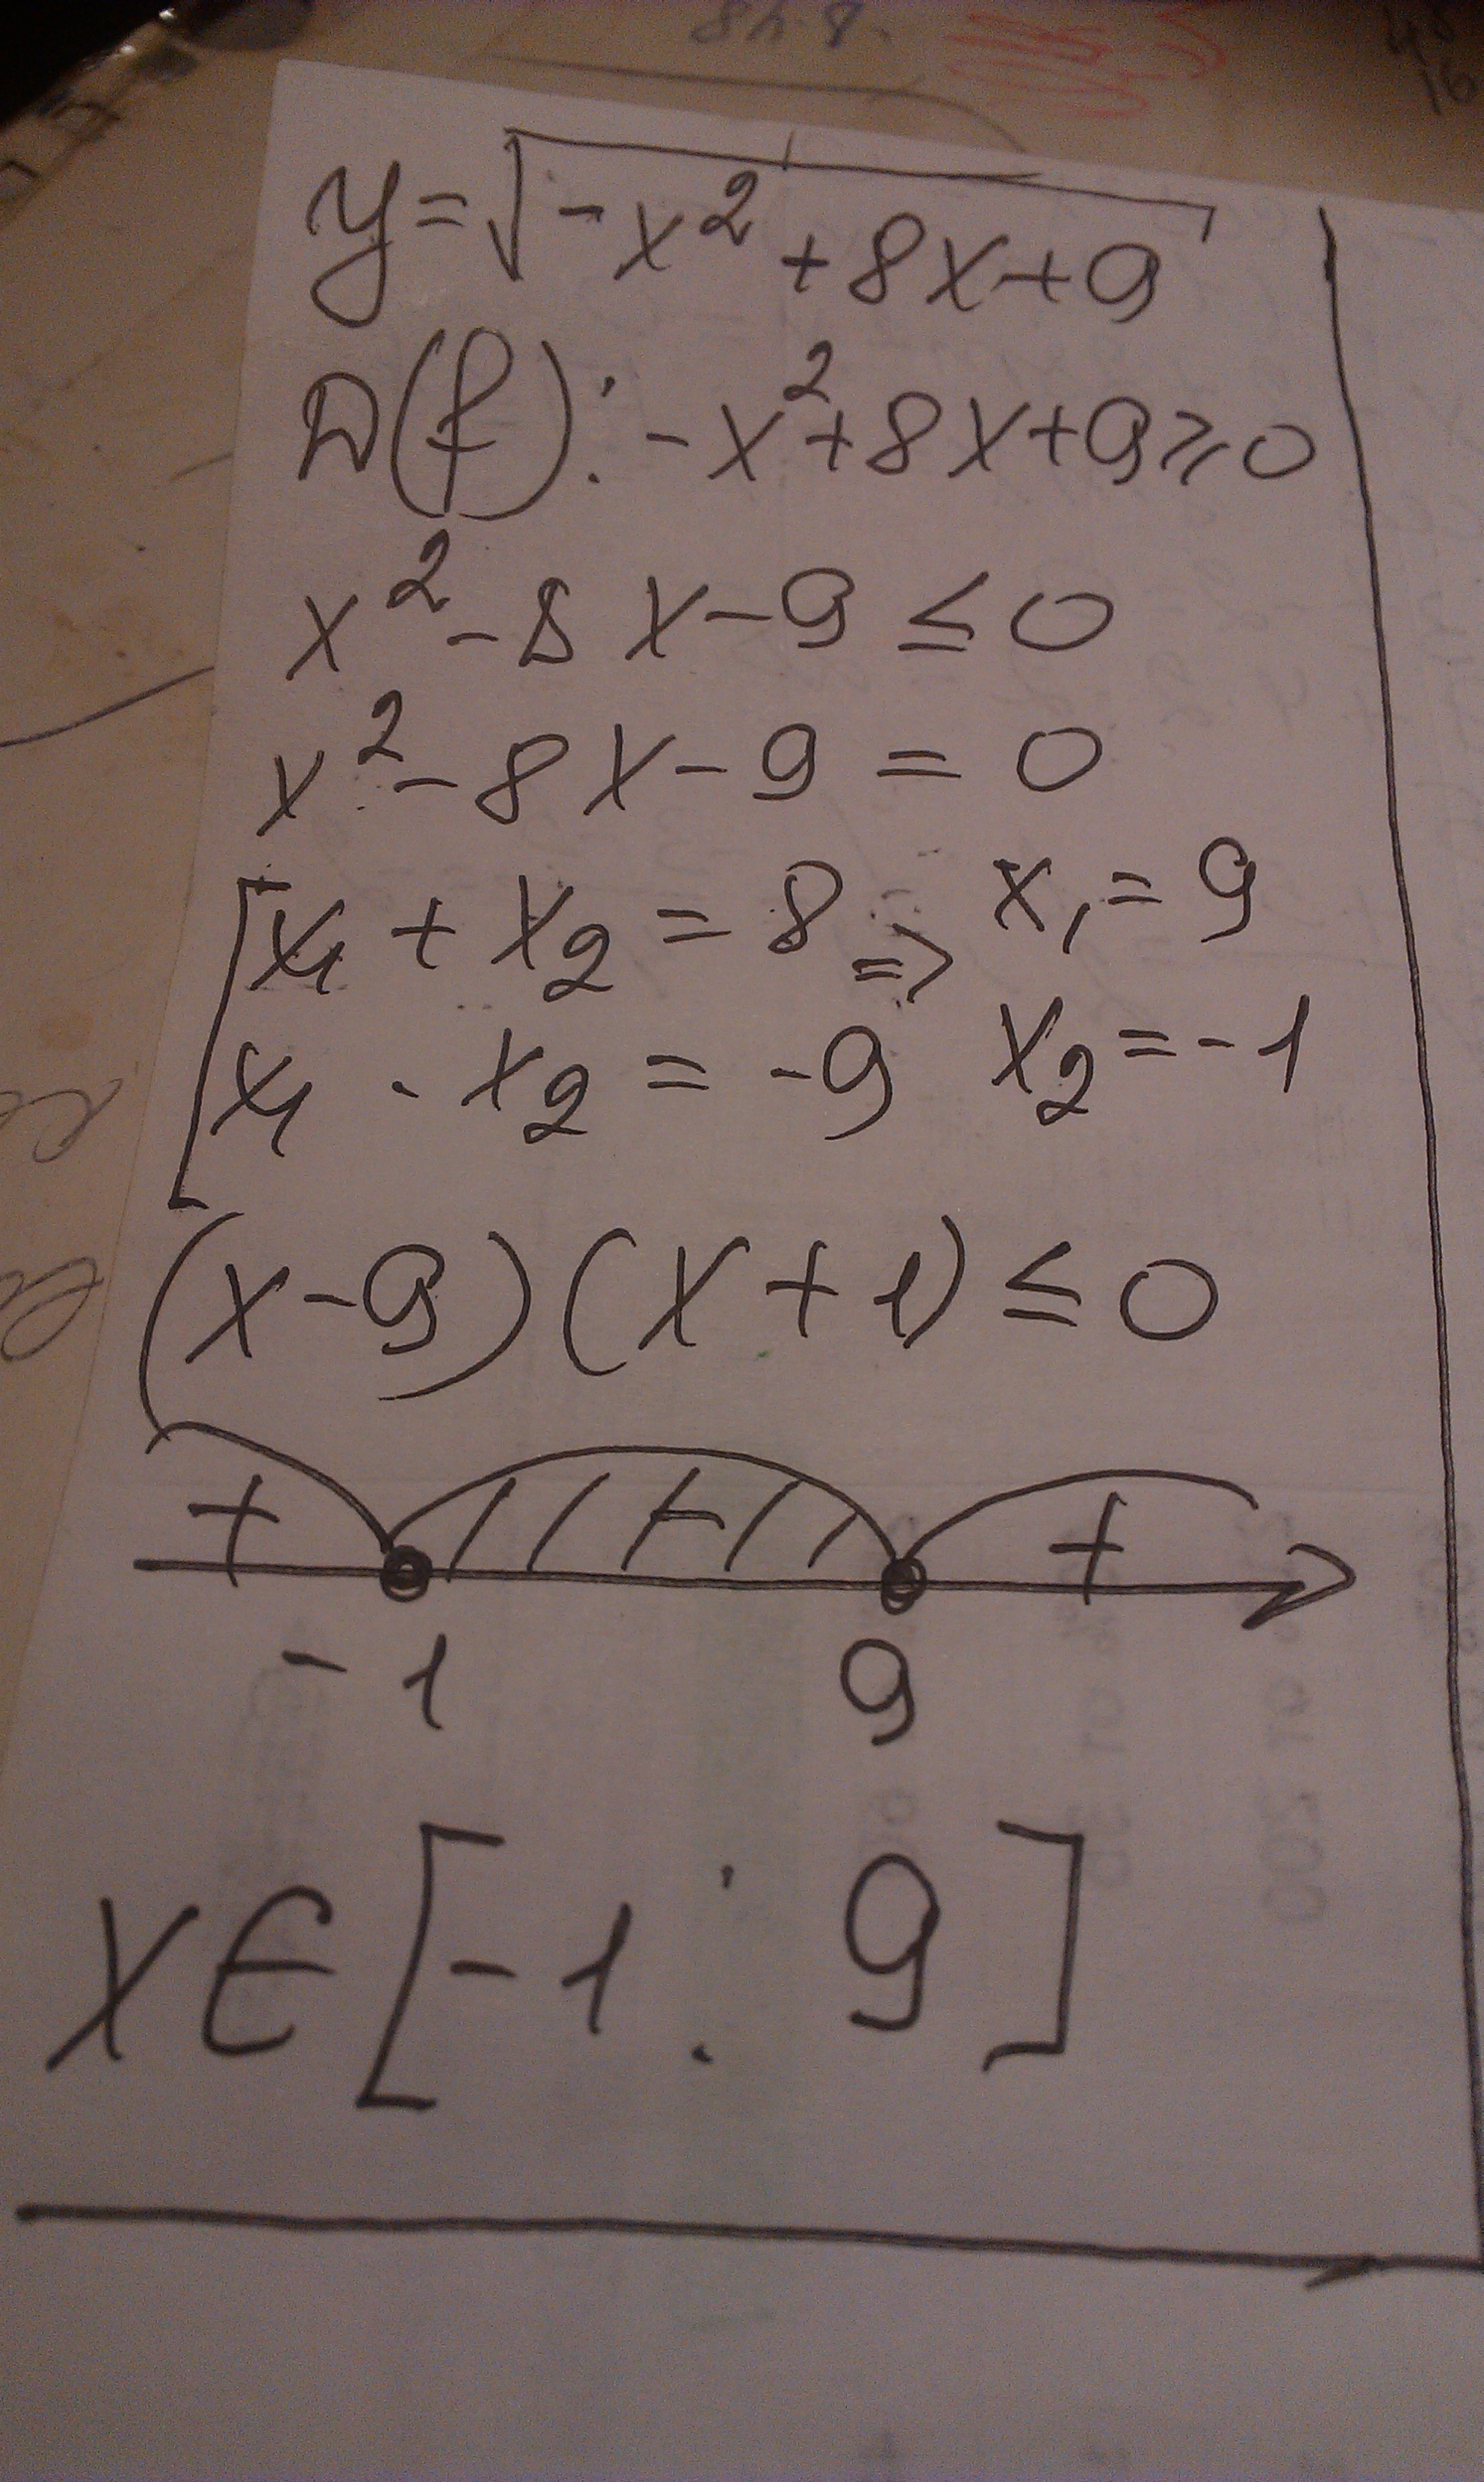 y=√-x²+8x+9
D(f): -x²+8x+9≥0
x²-8x-9≤0
x²-8x-9=0
x₁+x₂=8 => x₁=9
x₁·x₂=-9 x₂=-1
(x-9)(x+1)≤0
+ - +
-1 9
x∈[-1;9]